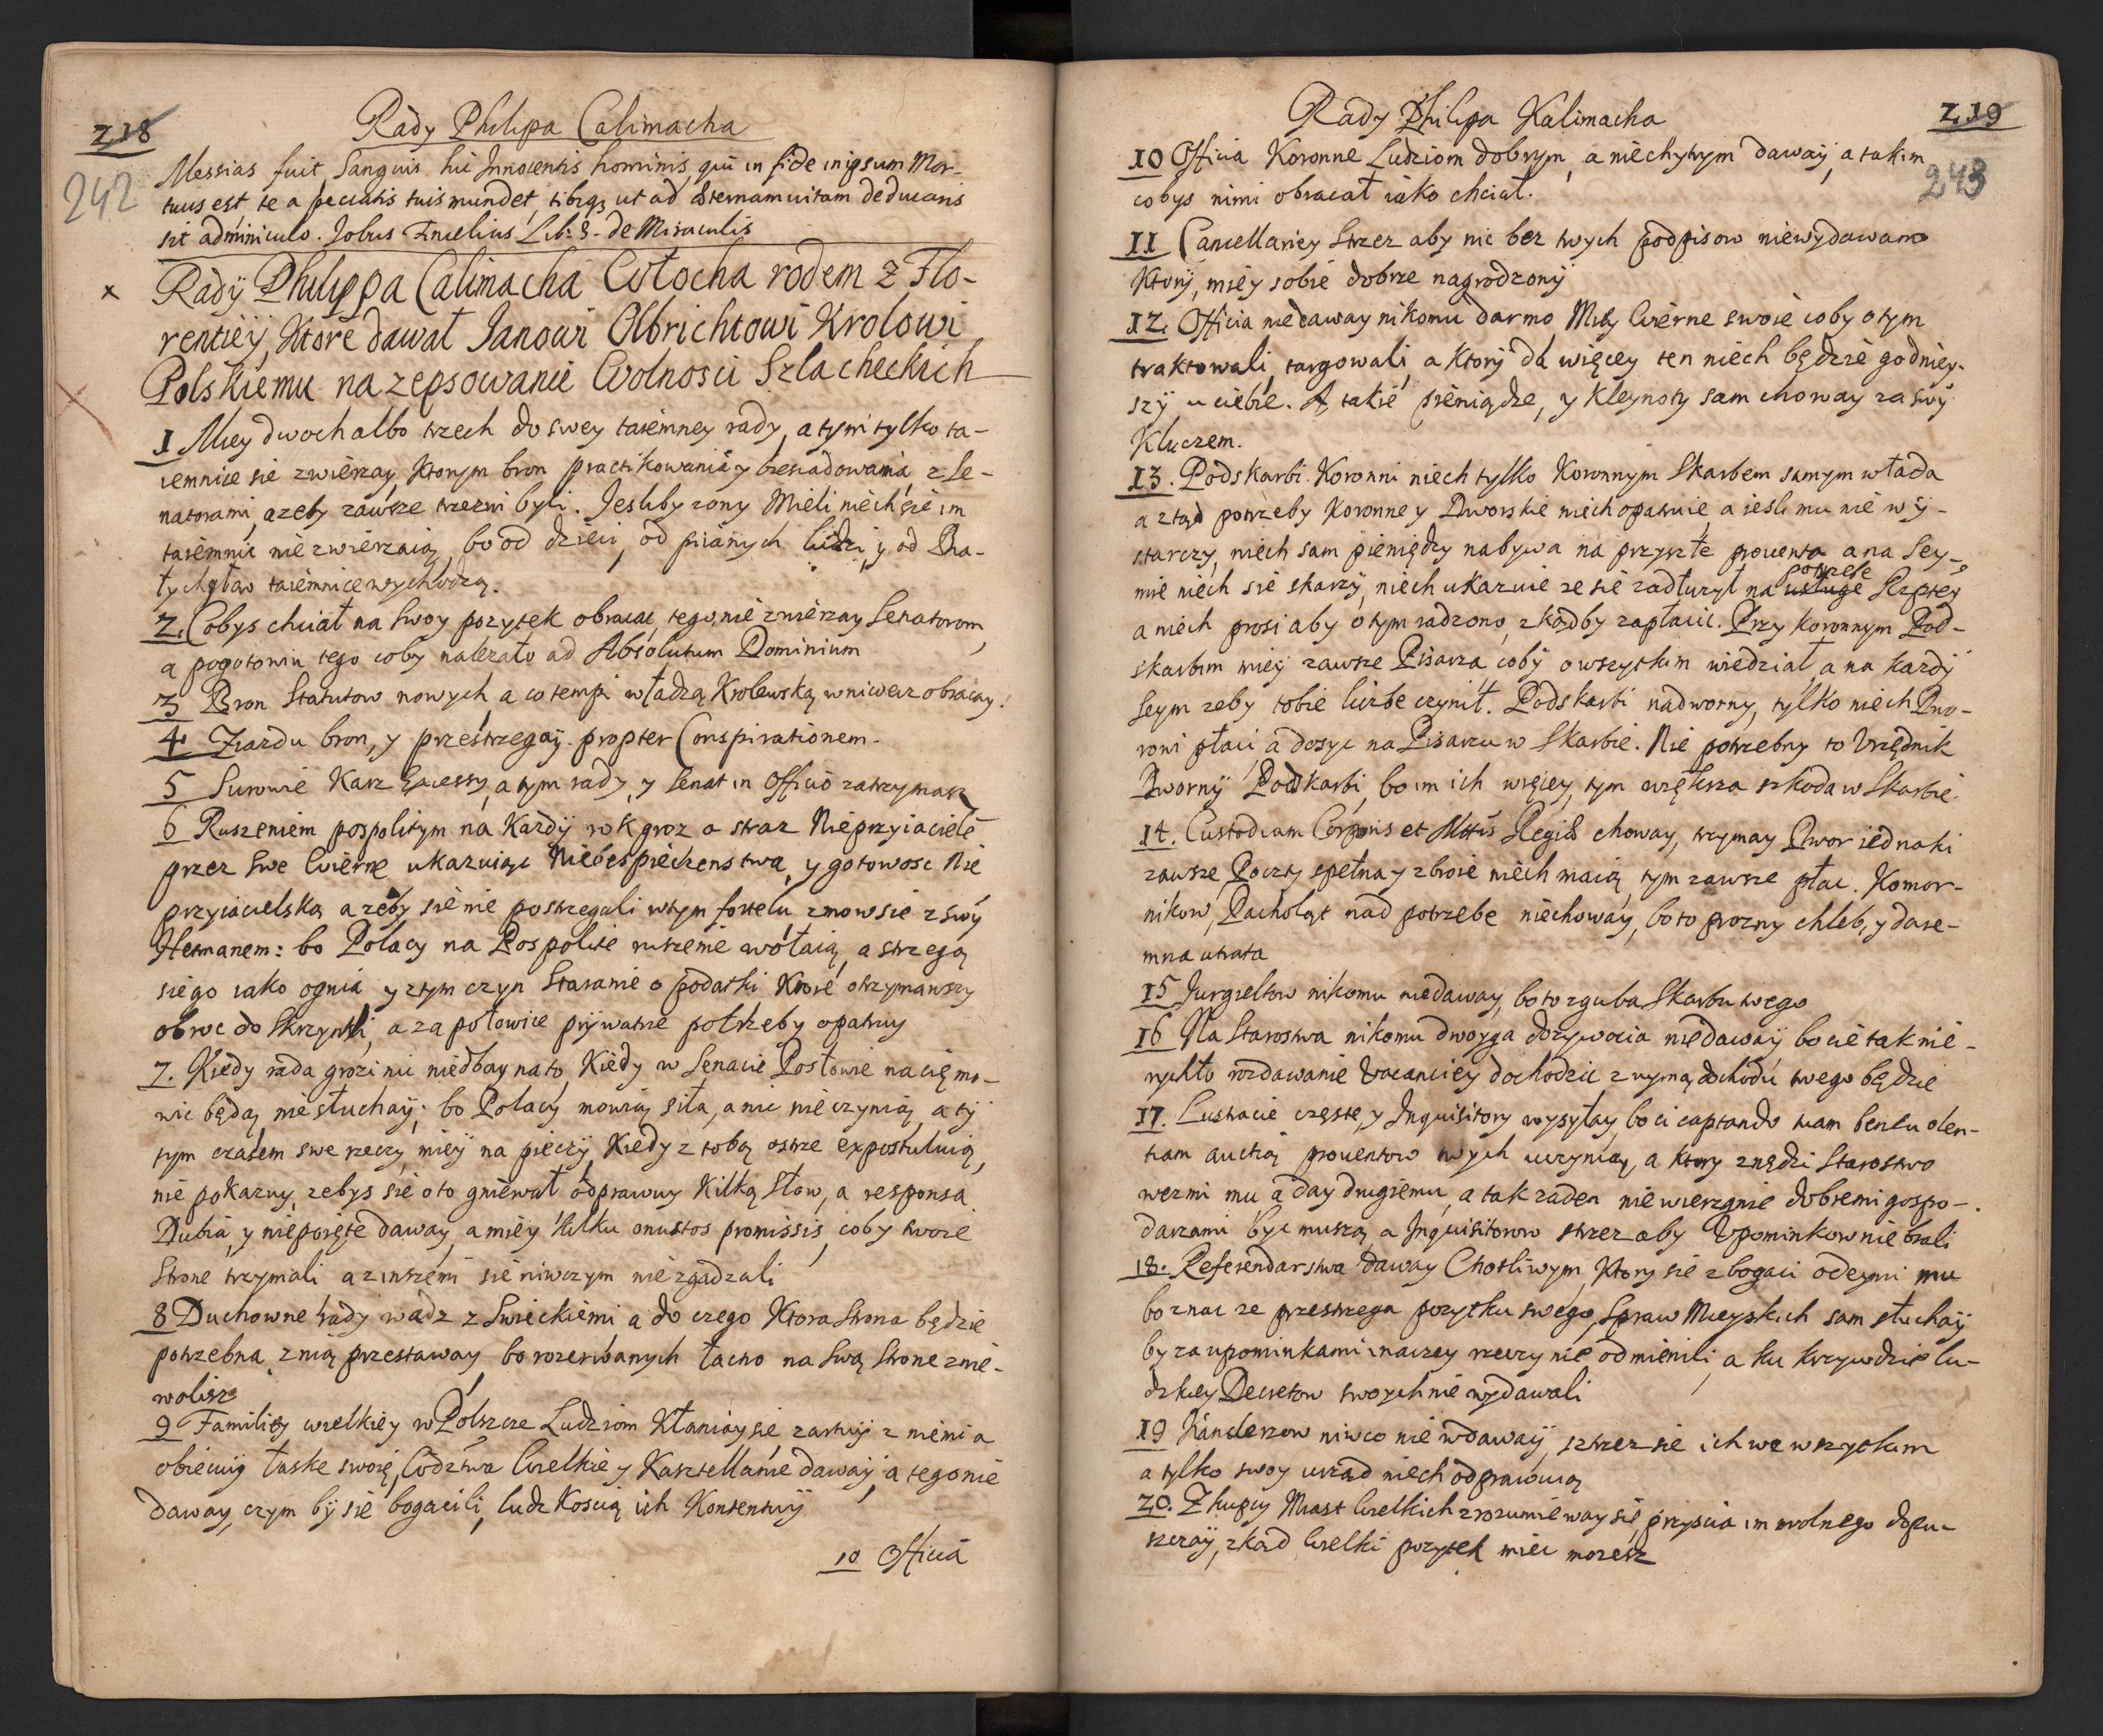 218
242
Rady Philipa Calimacha
Messias fuit, Sanguis hic Innocentis hominis, qui in fide in ipsum Mor-
tuus est, te a peccatis tuis mundet, tibiqȝ ut ad æternam uitam deducaris
sit adminiculo. Jobus Fincelius Lib: 3. de Miraculis
x Rady Philippa Calimacha Włocha rodem z Flo-
rentiey, Ktore dawał Janowi Olbrichtowi Krolowi
Polskiemu na zepsowanie Wolnosci Szlacheckich
1 Miey dwoch albo trzech do swey taiemney rady, a tym tylko ta-
iemnice sie zwierzay, Ktorym bron practikowania y biesiadowania z Se-
natorami, azeby zawsze trzezwi byli. Jesliby zony Mieli niech sie im
taiemnic nie zwierzaią, bo od dzieci, od piianych ludzi, y od Bia-
łychgłow taiemnice wychodzą.
2. Cobys chciał na swoy pozytek obracac, tego nie zwierzay Senatorom,
a pogotowiu tego coby nalezało ad Absolutum Dominium
3 Bron Statutow nowych, a co tempi władzą Krolewską wniwecz obracay.
4 Ziazdu bron, y przestrzegaÿ propter Conspirationem.
5 Surowie Karz Excessy, a tym rady, y Senat in Officio zatrzymasz
6 Ruszeniem pospolitym na Kazdÿ rok groz a straz Nieprzyiaciele
przez swe Wierne ukazuiąc Niebespieczenstwa, y gotowosc Nie
przyiacielską a zeby sie nie postrzegali wtym fortelu zmow sie z swÿ
Hetmanem: bo Polacy na Pospolite ruszenie wołaią, a strzegą
sie go iako ognia y ztym czyn Staranie o podatki Ktore otrzymawszy
obroc do Skrzynki, a za połowice prÿwatne potrzeby opatruy
7. Kiedy rada grozi nic niedbay na to, Kiedy w Senacie Posłowie na cię mo-
wic będą, nie słuchaÿ; bo Polacy mowią siła, a nic nie czynią, a tÿ
tym czasem swe rzeczy mieÿ na pieczÿ, Kiedy z tobą ostrze expostuluią,
nie pokazuy, zebys sie o to gniewał odprawuy Kilką słow, a responsa
Dubia, y niepoięte daway, a miey Kilku onustos promissis, coby twoie
strone trzymali a z inszemi sie niwczym nie zgadzali
8 Duchowne rady wadz z Swieckiemi a do czego Ktora strona będzie
potrzebna z nią przestaway bo rozerwanych łacno na swą strone znie-
wolisz
9 Familiey wielkiey w Polszcze Ludziom Kłaniay sie zartuÿ z niemi a
obiecuiÿ łaske swoię, Wodztwa Wielkie y Kasztellanie dawaÿ, a tego nie
daway, czym bÿ sie bogacili, ludzkoscią ich Kontentuÿ
10 Officia
Rady Philipa Kalimacha
219
243
10 Officia Koronne Ludziom dobrym, a niechytrym dawaÿ, a takim
cobys nimi obracał iako chciał.
11 Cancellariey strzez aby nic bez twych podpisow niewydawano
Ktorÿ, mieÿ sobie dobrze nagrodzonÿ
12. Officia niedaway nikomu darmo Mieÿ Wierne swoie coby o tym
traktowali, targowali, a Ktorÿ da więcey ten niech będzie godniey-
szÿ u ciebie. A takie pieniądze, y Kleynoty sam choway za swÿ
Kluczem.
13. Podskarbi Koronni niech tylko Koronnym Skarbem samym włada
a ztąd potrzeby Koronne y Dworskie niech opatruie, a iesli mu nie wÿ-
starczy, niech sam pieniędzy nabywa na przyszłe prouenta a na Sey-
mie niech sie skarzÿ, niech ukazuie ze sie zadłuzył na usługe potrzebe Rzptey
a niech prosi aby o tym radzono, zkądby zapłacic. Przy koronnym Pod-
skarbim mieÿ zawsze Pisarza cobÿ o wszytkim wiedział, a na kazdÿ
Seym zeby tobie liczbe czynił. Podskarbi nadworny, tylko niech Dwo-
rowi płaci, a dosyc na Pisarzu w Skarbie. Nie potrzebny to Vrzędnik
Dwornÿ Podskarbi, bo im ich więcey, tym większa szkoda w Skarbie.
14. Custodiam Corporis et Mttis Regiæ choway, trzymay Dwor iednaki
zawsze Poczty spełna y zbroie niech maią, tym zawsze płac. Komor-
nikow, Pacholąt nad potrzebe niechowaÿ, bo to prozny chleb, y dare-
mna utrata
15 Jurgieltow nikomu niedaway, bo to zguba Skarbu twego
16 Na Starostwa nikomu dwoyga dozywocia niedawaÿ bo cie tak nie-
rychło rozdawanie Vacanciey dochodzic z uymą dochodu twego będzie
17. Lustracie częste, y Inquisitory wysyłay, bo ci captando tuam beneuolen-
tiam auctią prouentow twych uczynią, a ktory znędzi Starostwo
wezmi mu a day drugiemu, a tak zaden niewierzgnie dobremi gospo-
darzami byc muszą, a Inquisitorow strzez aby Vpominkow nie brali
18. Referendarstwa daway Chotliwym, Ktory sie zbogaci odeymi mu
bo znac ze przestrzega pozytku swego, Spraw Mieyskich sam słuchaÿ
by za upominkami inaczey rzeczy nie odmienili, a ku krzywdzie lu-
dzkiey Decretow swoych nie wydawali
19 Kanclerzow niwco nie wdawaÿ, strzez sie ich we wszytkim
a tylko swoy urzad niech odprawuią
20. Z kupcy Miast Wielkich zrozumieway sie, przyscia im wolnego dopu-
szczaÿ, zkąd Wielki pozytek miec mozesz